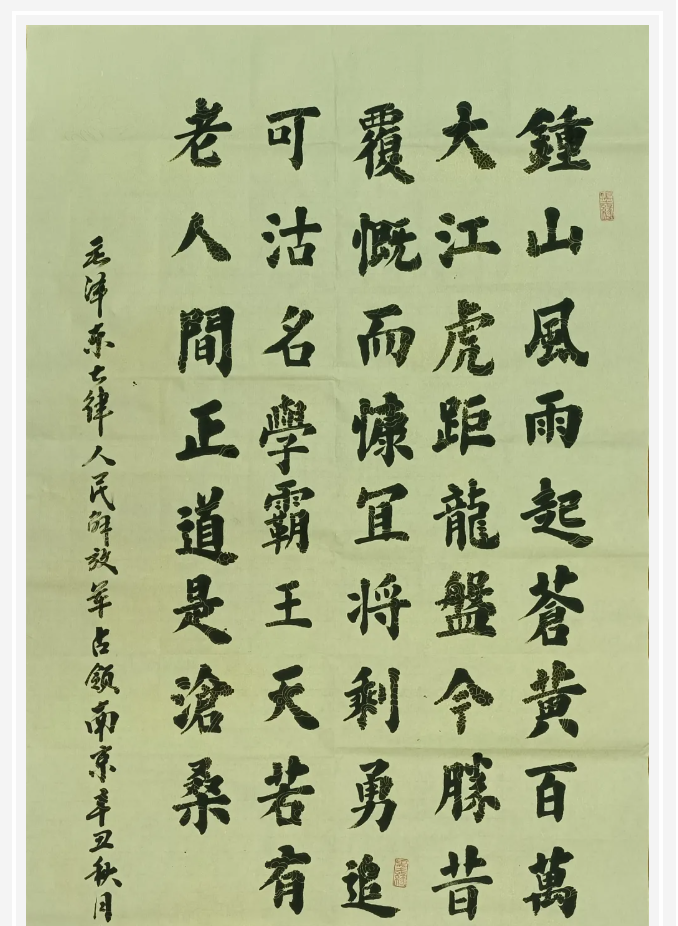 鍾山風雨起蒼黄百萬
大江虎距龍盤今勝昔
覆慨而慷冝将剩勇追
可沽名學霸王天若有
老人間正道是滄桑
毛泽东七律人民解放军占领南京辛丑秋月